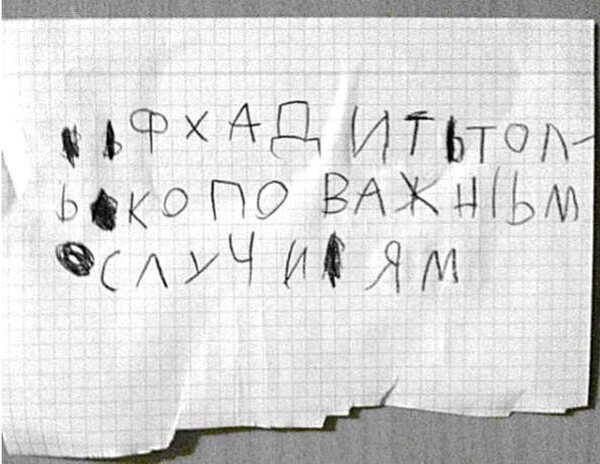 ФХАДИТЬТОЛ-
ЬКОПО ВАЖНЫМ
СЛУЧИЯМ